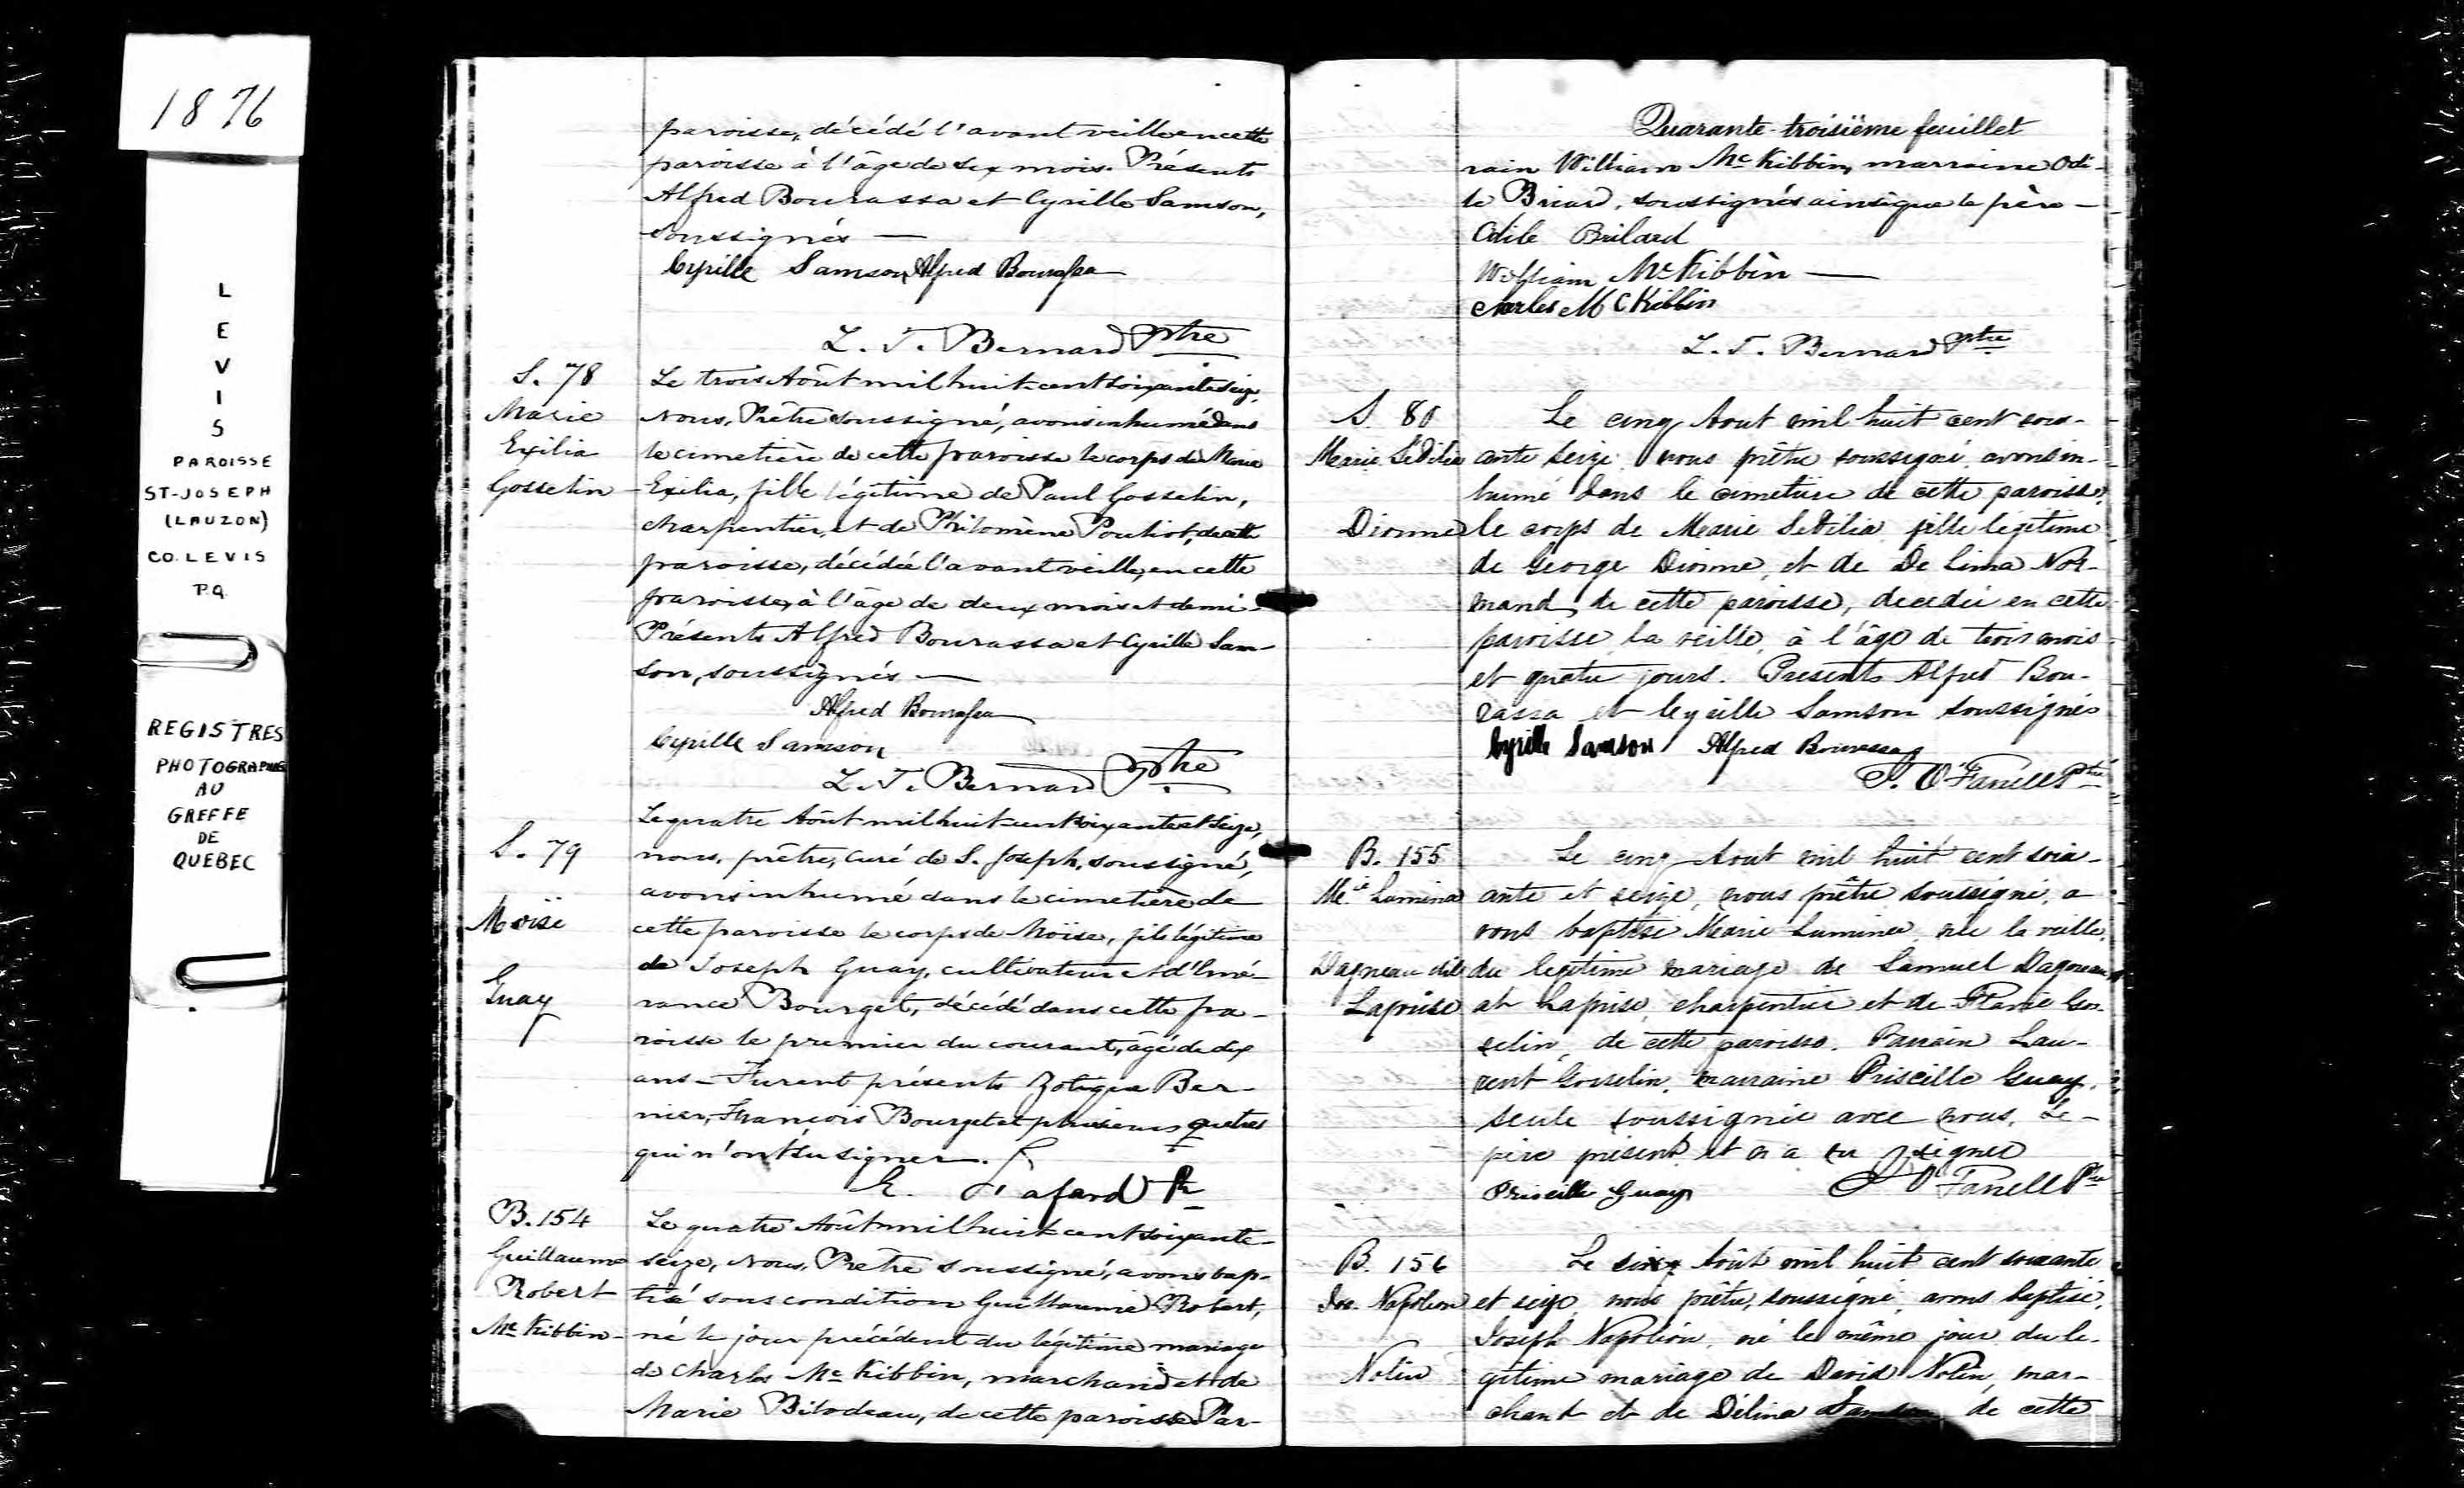 1876
L
E
V
I
S
PAROISSE
ST-JOSEPH
(LAUZON)
CO. LEVIS
P.Q.
REGISTRES
PHOTOGRAPHIES
AU
GREFFE
DE
QUEBEC
paroisse, décédé l'avant veille en cette
paroisse à l'âge de six mois. Présents
Alfred Bourassa et Cyrille Samson,
soussignés —
Cyrille Samson Alfred Bourassa
L. T. Bernard Ptre
S. 78
Marie
Exilia
Gosselin
Le trois Août mil huit cent soixante seize,
Nous, Prêtre soussigné, avons inhumé dans
le cimetière de cette paroisse le corps de Marie
Exilia, fille légitime de Paul Gosselin,
charpentier, et de Philomène Pouliot, de cette
paroisse, décédée l'avant veille, en cette
paroisse, à l'âge de deux mois et demi —
Présents Alfred Bourassa et Cyrille Sam-
son, soussignés —
Alfred Bourassa
Cyrille Samson
L. T. Bernard Ptre
S. 79
Moïse
Guay
Le quatre Août mil huit cent soixante et seize,
nous, prêtre, curé de S. Joseph, soussigné,
avons inhumé dans le cimetière de
cette paroisse le corps de Moïse, fils légitime
de Joseph Guay, cultivateur et d'Emé-
rance Bourget, décédé dans cette pa-
roisse le premier du courant, âgé de dix
ans — Furent présents Zotique Ber-
nier, François Bourget et plusieurs autres
qui n'ont su signer.
E. Fafard Ptr
B. 154
Guillaume
Robert
Mc Kibbin
Le quatre Août mil huit cent soixante-
seize, Nous, Prêtre soussigné, avons bap-
tisé sous condition Guillaume Robert,
né le jour précédent du légitime mariage
de Charles Mc Kibbin, marchand et de
Marie Bilodeau, de cette paroisse Par-
Quarante-troisième feuillet
rain William Mc Kibbin, marraine Odi-
le Briard, soussignés ainsi que le père —
Odile Brilard
William Mc Kibbin —
Charles Mc Kibbin
L. T. Bernard Ptre
S. 80
Marie Sedilia
Dionne
Le cinq Aout mil huit cent soix-
ante seize nous prêtre soussigné avons in-
humé dans le cimetiere de cette paroisse,
le corps de Marie Sedilia fille légitime
de George Dionne, et de De Lima Nor-
mand, de cette paroisse, decedée en cette
paroisse la veille, à l'âge de trois mois
et quatre jours. Presents Alfred Bou-
rassa et Cyrille Samson soussignés
Cyrille Samson Alfred Bourassa
O'Farrell Ptre
B. 155
Me. Lumina
Dagneau dit
Laprise
Le cinq Aout mil huit cent soix-
ante et seize, nous prêtre soussigné, a
vons baptisé Marie Lumina née la veille,
du legitime mariage de Samuel Dagneau
dt Laprise, charpentier et de Flavie Gos-
selin, de cette paroisse. Parrain Lau-
rent Gosselin, marraine Priscille Guay,
seule soussignée avec nous, Le-
père présent et n'a su signer
Priscille Guay O'Farrell Ptre
B. 156
Jos. Napoléon
Nolin
Le six Août mil huit cent soixante
et seize nous prêtre, soussigné, avons baptisé,
Joseph Napoléon, né le même jour du lé-
gitime mariage de David Nolin, mar-
chand et de Délina de cette